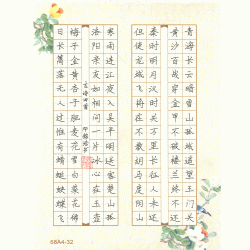 青海长云暗雪山孤城遥望玉门关
黄沙百战穿金甲不破楼兰终不还
秦时明月汉时关万里长征人未还
但使龙城飞将在不教胡马度阴山
寒雨连江夜入吴平明送客楚山孤
洛阳亲友如相问一片冰心在玉壶
古诗四首
梅子金黄杏子肥麦花雪白菜花稀
日长篱落无人过惟有蜻蜓蛱蝶飞
68A4-32